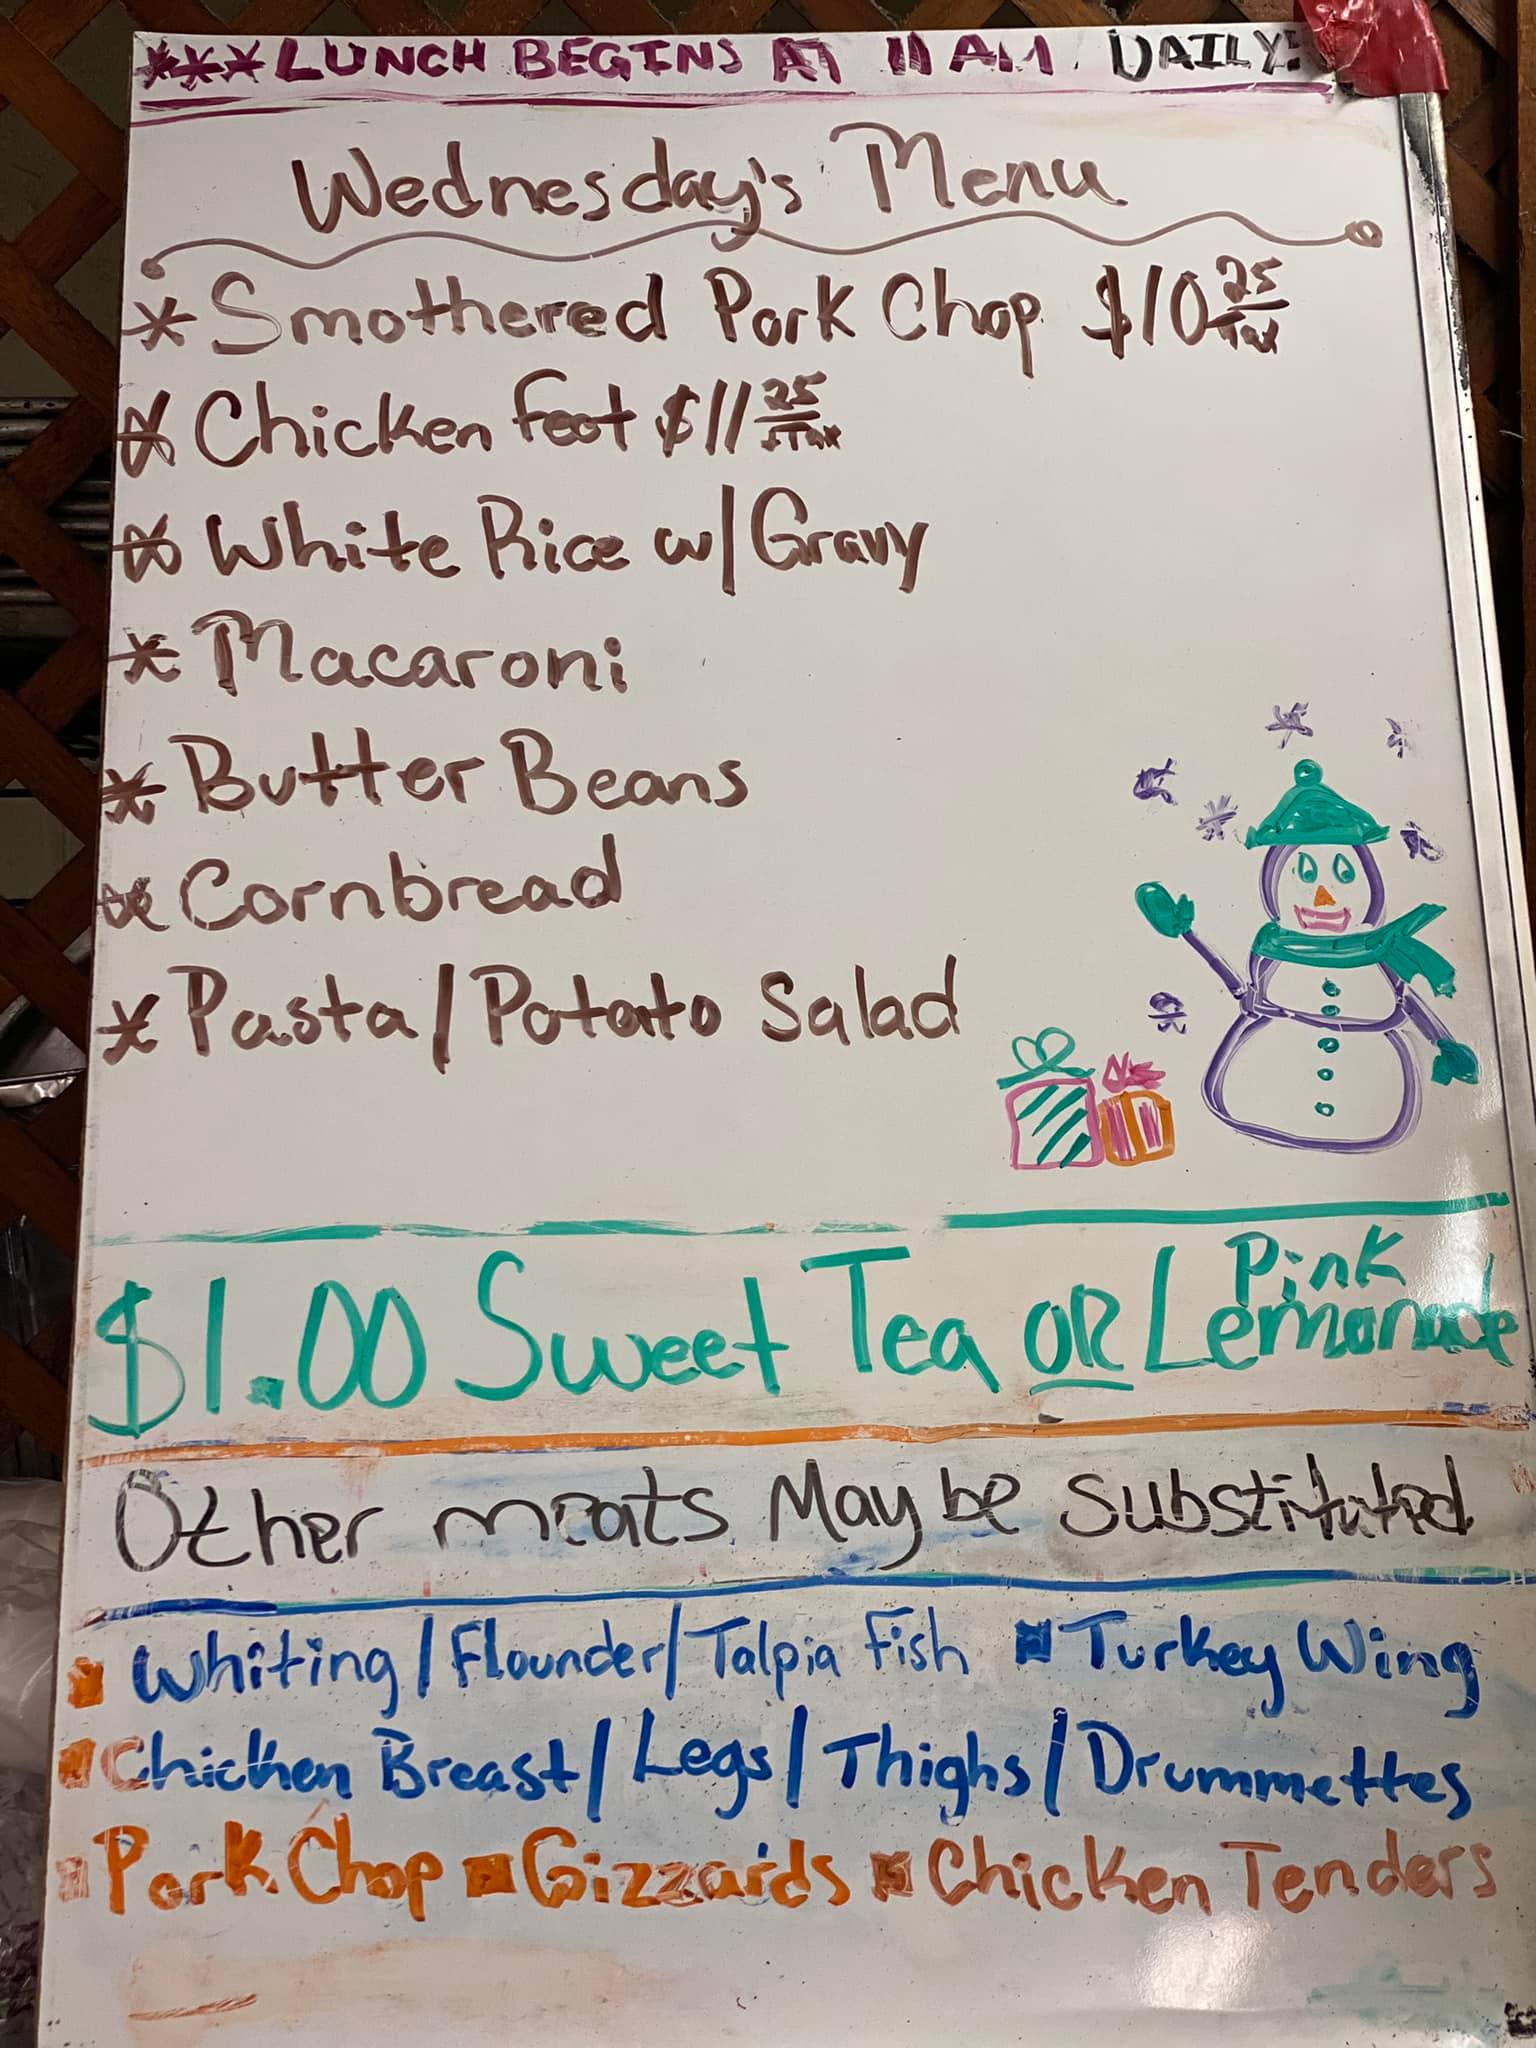 ***LUNCH BEGINS AT 11 AM. DAILY!
Wednesday's Menu
* Smothered Pork Chop $10 25 +Tax
* Chicken Feet $11 25 +Tax
* White Rice w/ Gravy
* Macaroni
* Butter Beans
* Cornbread
* Pasta/Potato Salad
$1.00 Sweet Tea OR Pink Lemonade
Other meats May be substituted
Whiting/Flounder/Talpia Fish Turkey Wing
Chicken Breast/Legs/Thighs/Drummettes
Pork Chop Gizzards Chicken Tenders